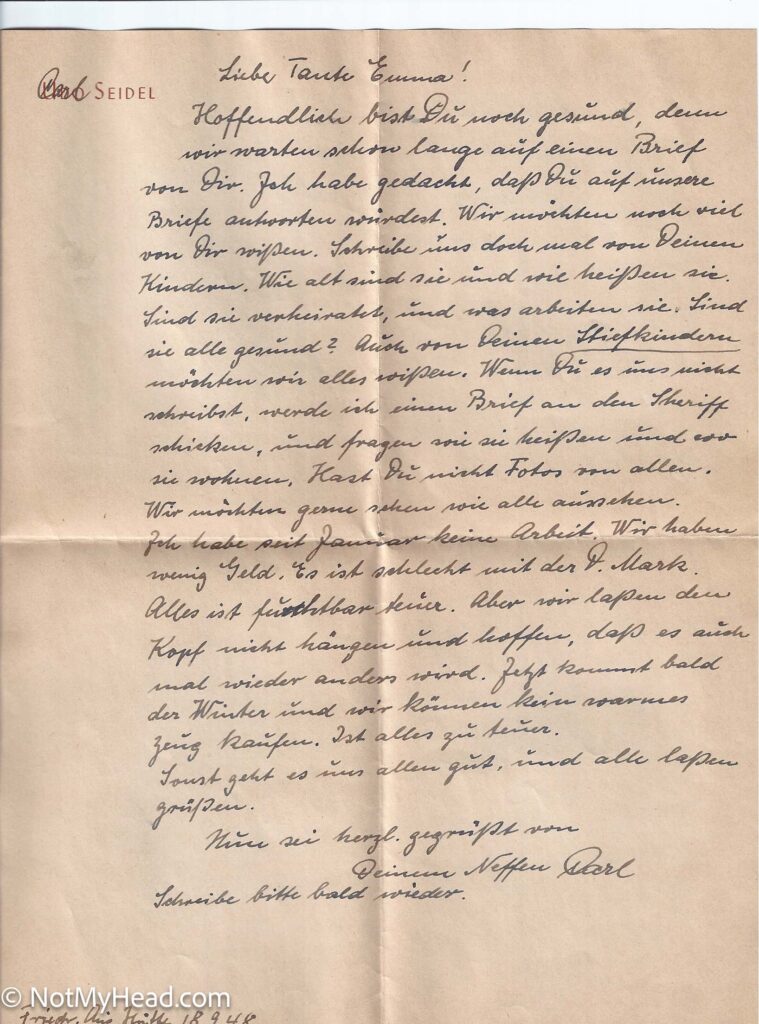 Liebe Tante Emma!
Carl SEIDEL
Hoffendlich bist Du noch gesund, denn
wir warten schon lange auf einen Brief
von Dir. Ich habe gedacht, daß Du auf unsere
Briefe antworten würdest. Wir möchten noch viel
von Dir wißen. Schreibe uns doch mal von Deinen
Kindern. Wie alt sind sie und wie heißen sie.
Sind sie verheiratet, und was arbeiten sie. Sind
sie alle gesund? Auch von Deinen Stiefkindern
möchten wir alles wißen. Wenn Du es uns nicht
schreibst, werde ich einen Brief an den Sheriff
schicken, und fragen wie sie heißen und wo
sie wohnen. Hast Du nicht Fotos von allen.
Wir möchten gerne sehen wie alle aussehen.
Ich habe seit Januar keine Arbeit. Wir haben
wenig Geld. Es ist schlecht mit der D. Mark.
Alles ist furchtbar teuer. Aber wir laßen den
Kopf nicht hängen und hoffen, daß es auch
mal wieder anders wird. Jetzt kommt bald
der Winter und wir können kein warmes
Zeug kaufen. Ist alles zu teuer.
Sonst geht es uns allen gut, und alle laßen
grüßen.
Nun sei herzl. gegrüßt von
Deinem Neffen Carl
Schreibe bitte bald wieder.
© NotMyHead.com
Friedr. Aug Hütte 18.9.48